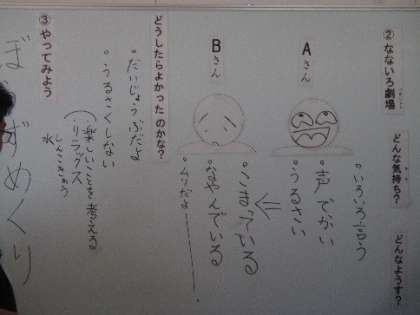 ② なないろ劇場 どんな気持ち？ どんなようす？
・いろいろ言う
Aさん
・声でかい
・うるさい
Bさん
・こまっている
・なやんでいる
どうしたらよかったのかな？
・だいじょうぶだよ
・うるさくしない
(楽しいことを考える
・リラックス
しんこきゅう
水
③ やってみよう
めくり